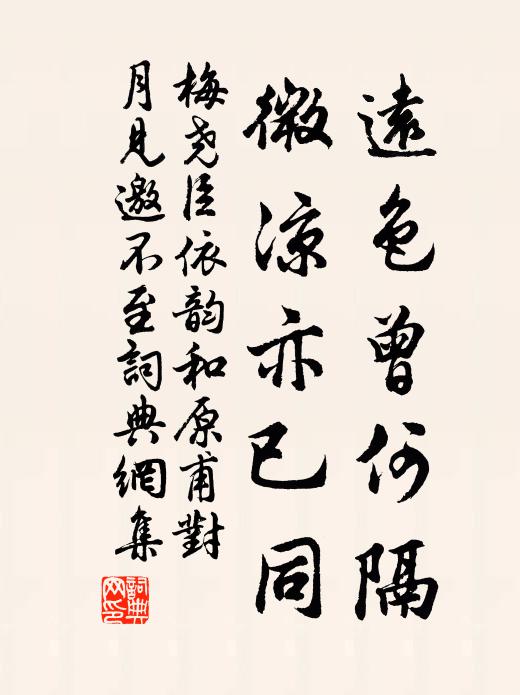 遠色曾何隔
微涼亦已同
梅堯臣依韵和原甫對
月見邀不至詞典網集
詞典網印